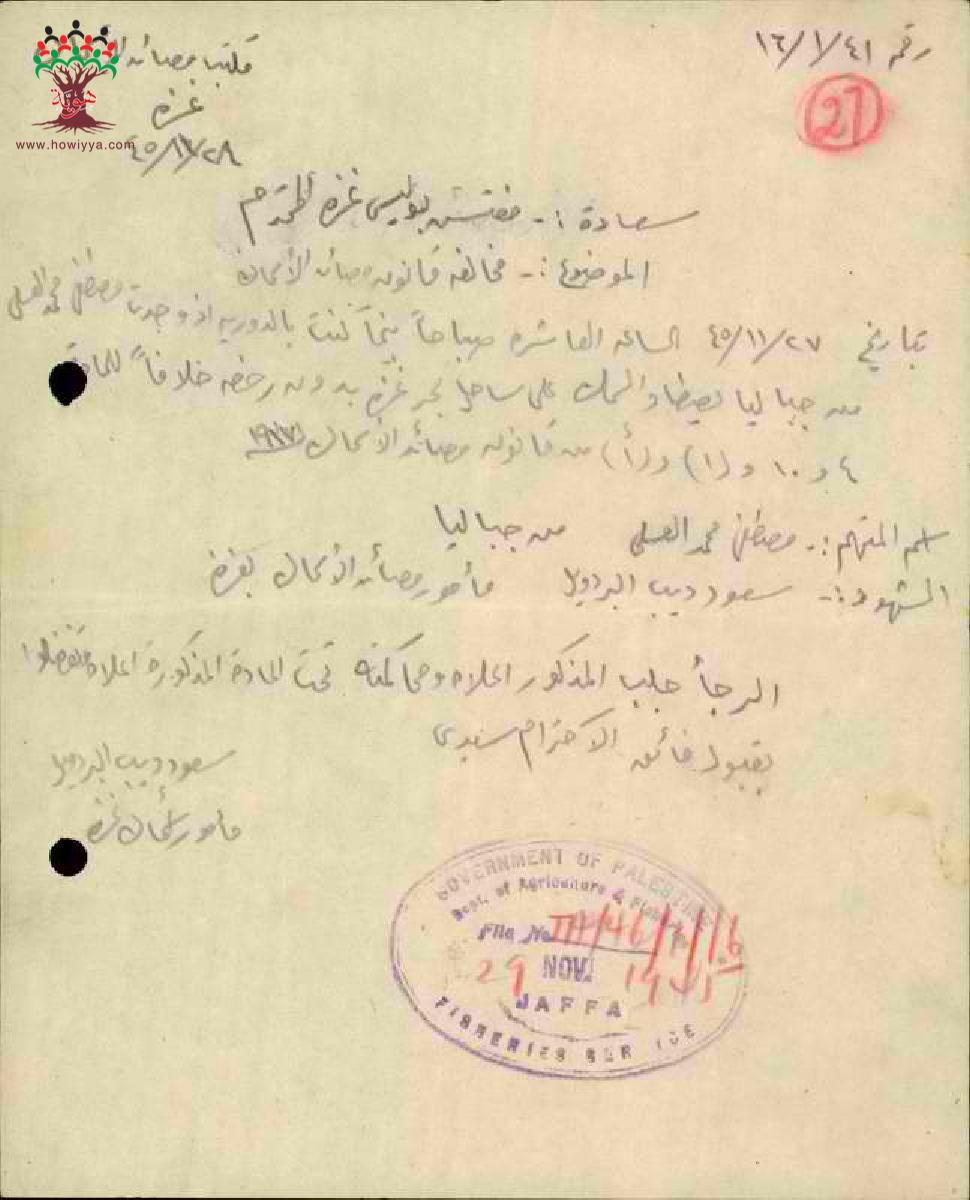 رقم ١٦/١/٤١
27
مكتب مصائد
هوية
غزة
www.howiyya.com
سعادة :- مفتش بوليس غزة المحترم
الموضوع :- مخالفة قانون مصائد الأسماك
بتاريخ ٤٥/١١/٢٧ الساعة العاشرة صباحاً بينما كنت بالدورية اذ وجدت مصطفى محمد العسلي
من جباليا يصطاد السمك على ساحل بحر غزة بدون رخصة خلافاً للمادة
٤ و ١٠ و (١) و (أ) من قانون مصائد الأسماك
اسم المتهم :- مصطفى محمد العسلي من جباليا
الشهود :- سعود ديب البردويل مأمور مصائد الأسماك بغزة
الرجأ جلب المذكور اعلاه ومحاكمته تحت المادة المذكورة اعلاه وتفضلوا
بقبول فائق الاحترام سيدي
سعود ديب البردويل
مأمور أسماك غزة
GOVERNMENT OF PALESTINE
Dept. of Agriculture & Fisheries
File No.
29 NOV. 1945
JAFFA
FISHERIES SERVICE